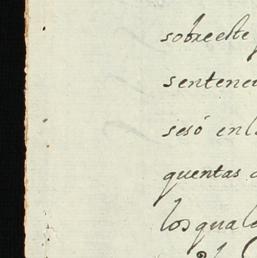 sobreeste
sentenci
sesó en l
quentas
los quale